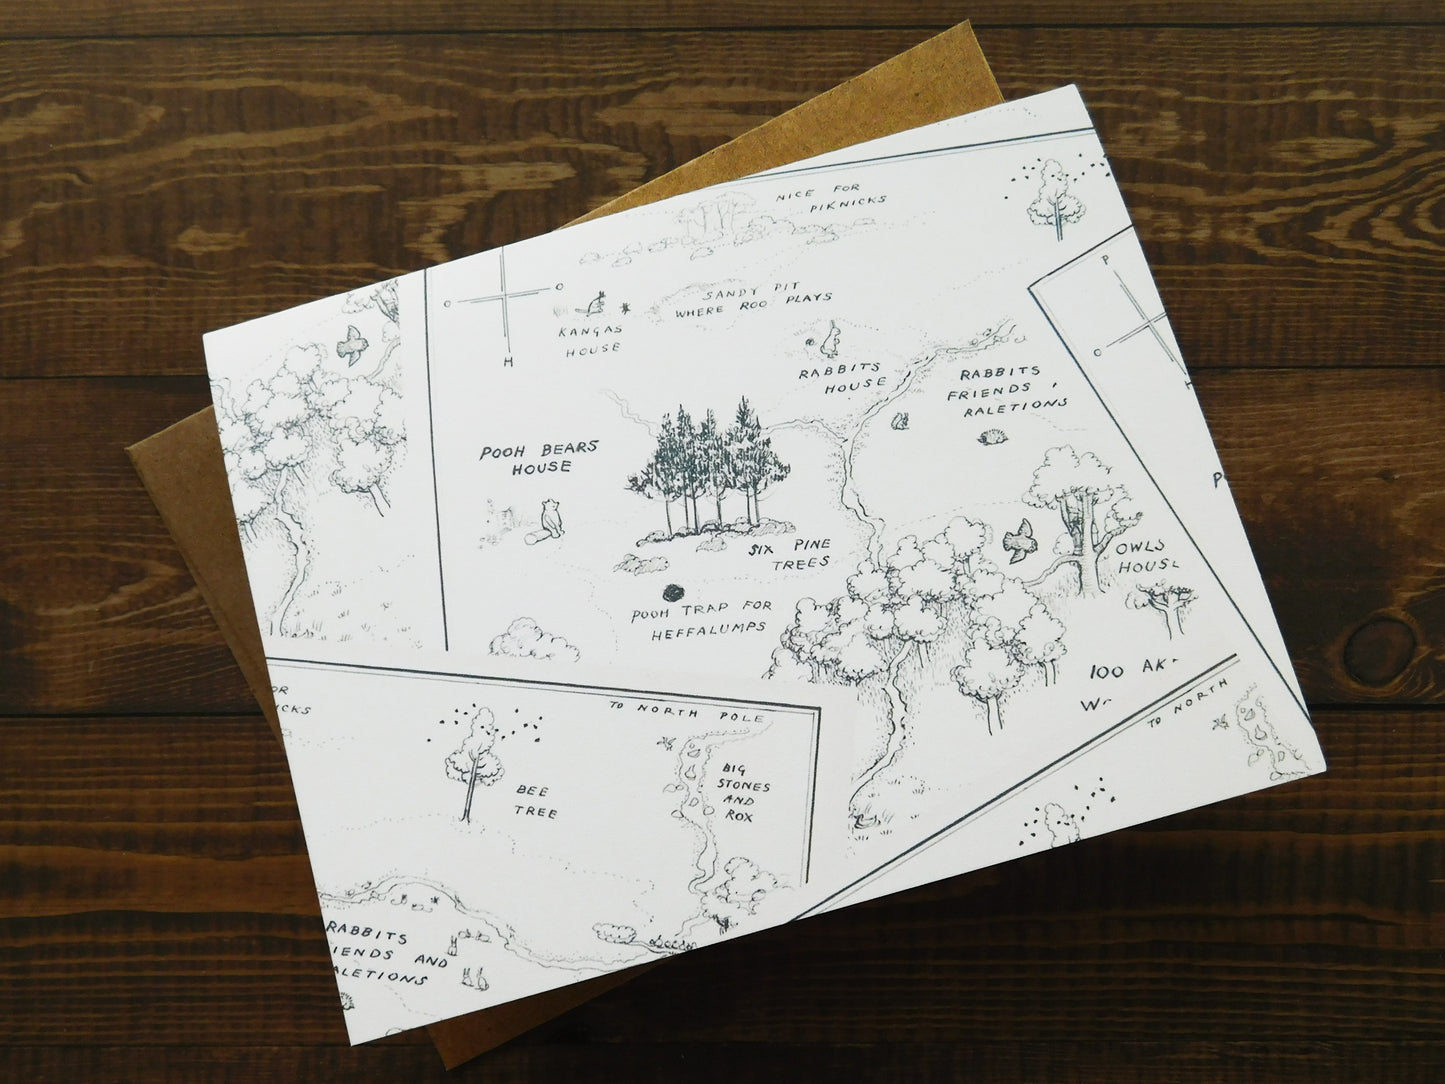 NICE FOR
PIKNICKS
SANDY PIT
WHERE ROO PLAYS
O
O
H
KANGAS
HOUSE
RABBITS
HOUSE
RABBITS
FRIENDS ,
RALETIONS
P
O
POOH BEARS
HOUSE
SIX PINE
TREES
POOH TRAP FOR
HEFFALUMPS
OWLS
HOUS
100 AK
W
TO NORTH
OR
ICKS
TO NORTH POLE
BEE
TREE
BIG
STONES
AND
ROX
RABBITS
IENDS AND
ALETIONS